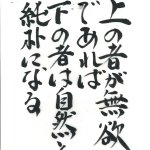 上の者が無欲
であれば
下の者は自然と
純朴になる